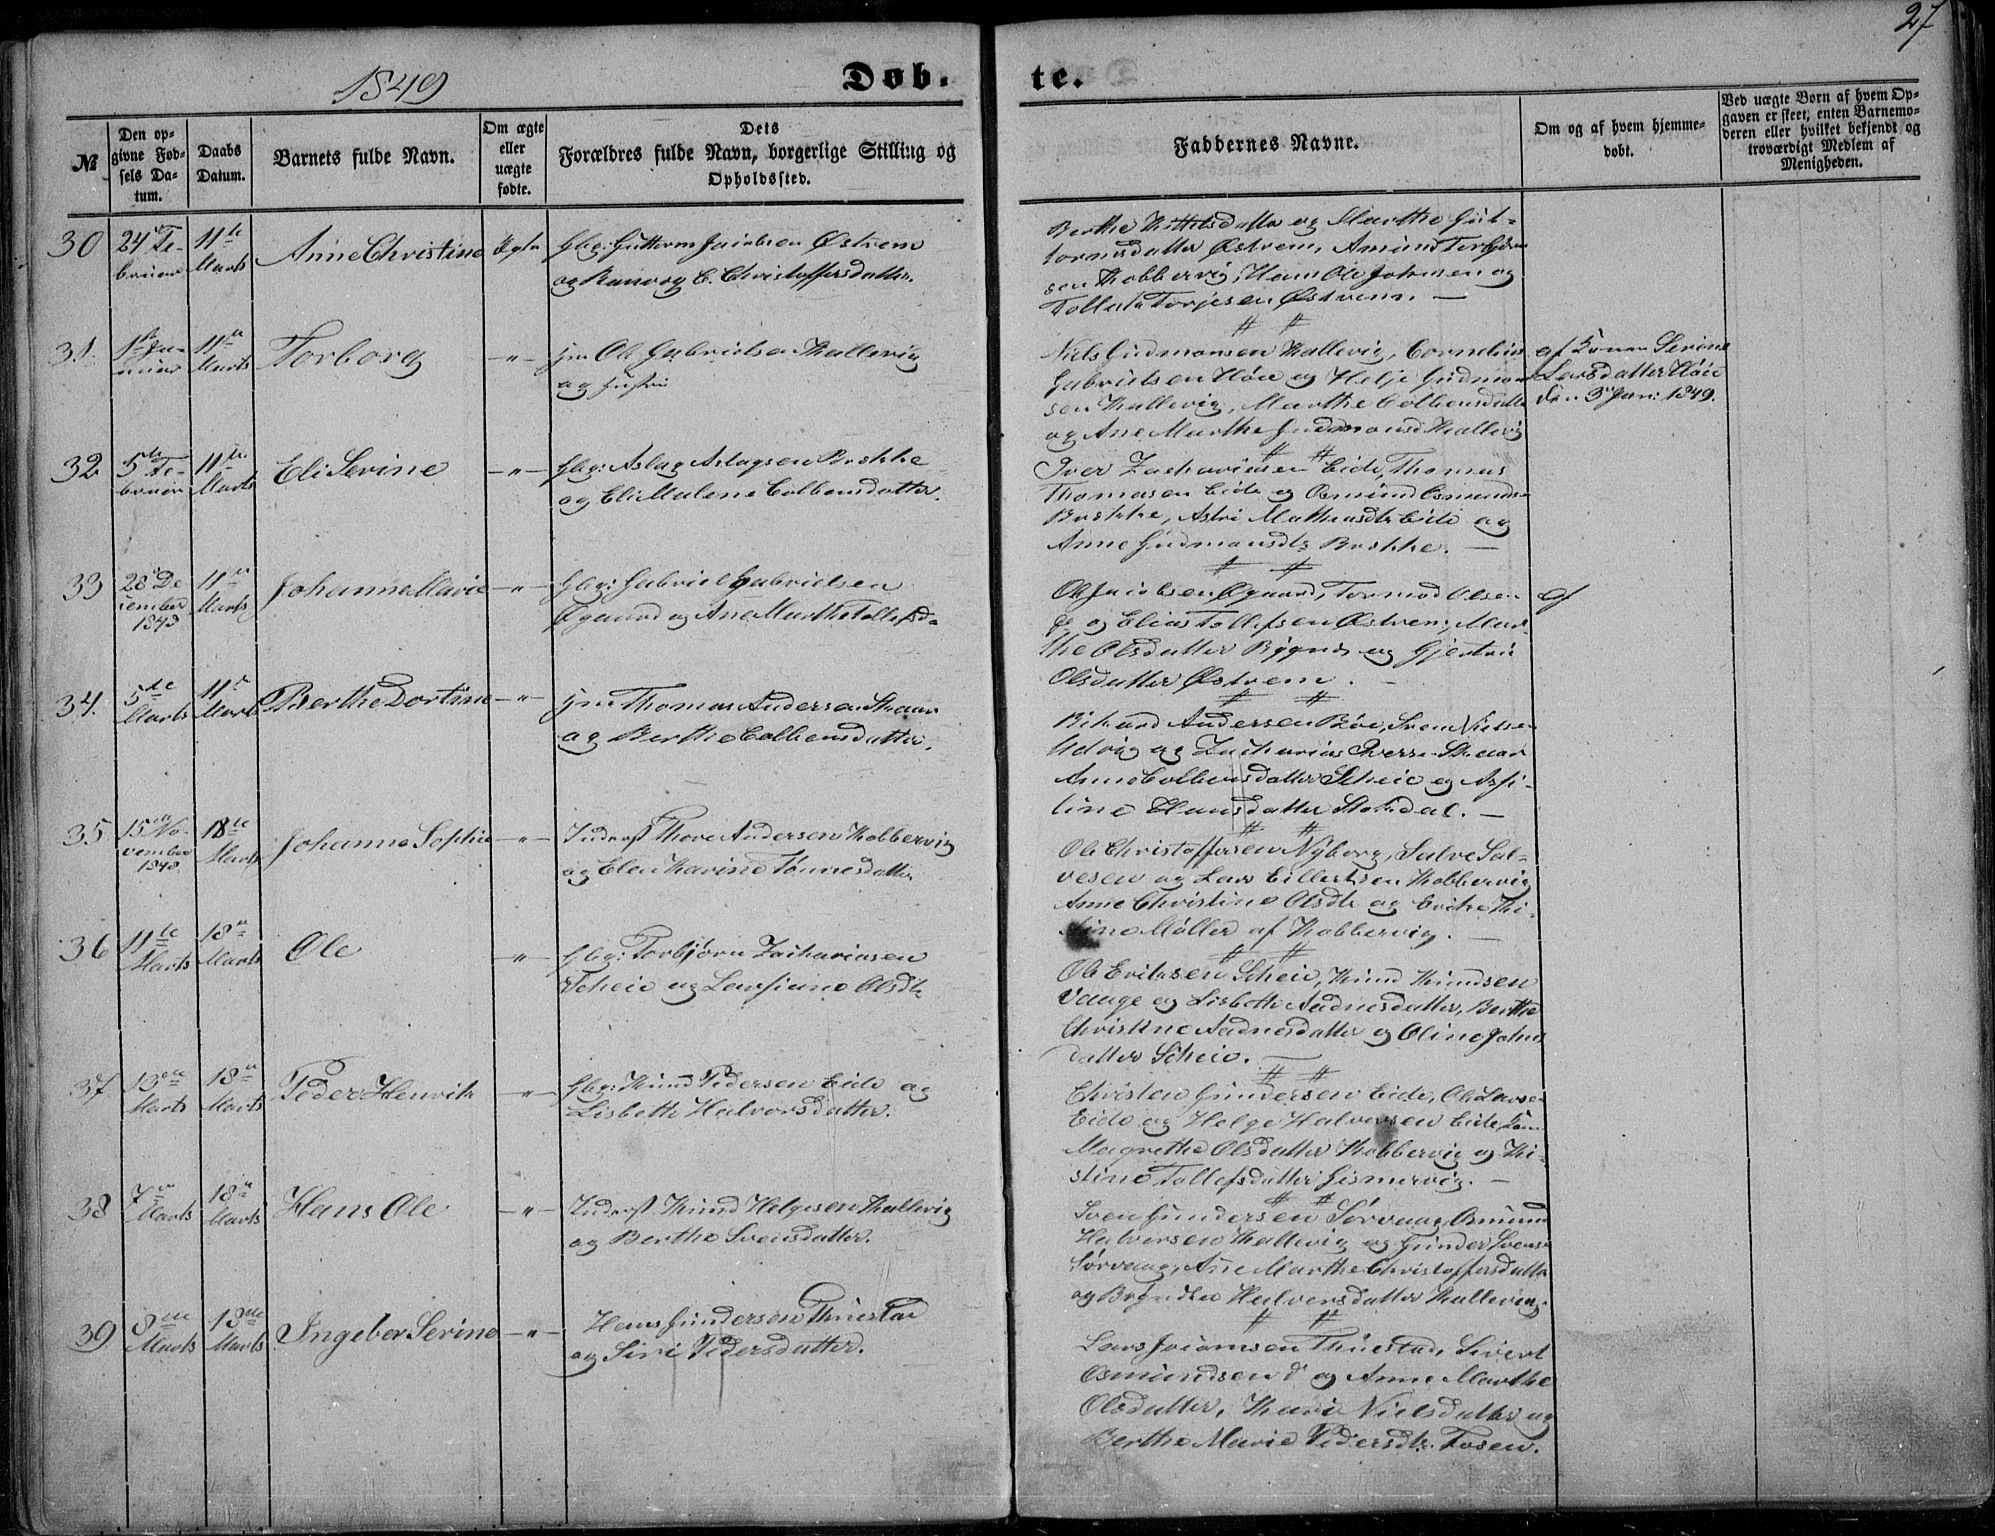 27
1849
Døb-
te.
№
Den op-
givne Fød-
sels Da-
tum.
Daabs
Datum.
Barnets fulde Navn.
Om ægte
eller
uægte
fødte.
Dets
Forældres fulde Navn, borgerlige Stilling og
Opholdssted.
Faddernes Navne.
Om og af hvem hjemme-
døbt.
Ved uægte Børn af hvem Op-
gaven er skeet, enten Barnemo-
deren eller hvilket bekjendt og
troværdigt Medlem af
Menigheden.
30
24 Fe-
bruar
11te
Marts
Anne Christine
Ægte
Gbr: Guttorm Jacobsen Østrem
og Ranvog E. Christoffersdatter.
Berthe Kittelsdatter og Marthe Gut-
tormsdatter Østrem, Amund Torbjørn
sen Kobbervig, Hans Ole Johnsen og
Tollak Torjesen Østrem. —
31.
1ste Ja-
nuar
11te
Marts
Torborg
— " —
Gm Ole Gabrielsen Hallevig
og Hustru
Niels Gudmonsen Hallevig, Cornelius
Gabrielsen Høie og Helje Gudmon
sen Hallevig, Marthe Colbensdatter
og Ane Marthe Gudmonsd Hallevig
af Konen Serine
Larsdatter Høie
den 3 Jan: 1849.
32
5te Fe-
bruar
11te
Marts
Eli Serine
— " —
Gbr: Aslag Aslagsen Brekke
og Eli Malene Colbensdatter.
Iver Zachariasen Eide, Thomas
Thomasen Eide og Osmund Osmunds
Brekke, Astri Mathiasdtr Eide og
Anne Gudmonsdtr Brekke. —
33
28 De
cember
1848
11te
Marts
Johanne Marie
— " —
Gbr: Gabriel Gabrielsen
Øgaard og Ane Marthe Tollefsd=
Ole Jacobsen Øgaard, Tormod Olsen
do og Elias Tollefsen Østrem, Mar-
the Olsdatter Bygnes og Gjertrü
Olsdatter Østrem. —
af
34.
5te
Marts
11te
Marts
Berthe Dortine
— " —
Gm Thomas Andersen Skaar
og Berthe Colbensdatter.
Rikard Andersen Bøe, Sven Nielsen
Udvig og Zacharias Iversen Skaar
Anne Colbensdatter Scheie og Asse-
line Hansdatter Stokdal. —
35
15 No-
vember
1848
18te
Marts
Johanne Sophie
— " —
Inderst Thore Andersen Kobbervig
og Elen Karine Tønnesdatter
Ole Christoffersen Nyborg, Salve Sal-
vesen og Lars Eilertsen Kobbervig
Anne Christine Olsdtr og Erike Ki-
stine Møller af Kobbervig. —
36
11te
Marts
18te
Marts
Ole
— " —
Gbr: Torbjørn Zachariasen
Scheie og Larsiane Olsdtr
Ole Eriksen Scheie, Knud Knudsen
Vaage og Lisbeth Aadnesdatter, Berthe
Christine Aadnesdatter og Oline Johns
datter Scheie. —
37
13de
Marts
18te
Marts
Peder Henrik
— " —
Gbr: Knud Pedersen Eide og
Lisbeth Halvorsdatter.
Christen Gundersen Eide, Ole Larsen
Eide og Helge Halvorsen Eide, Kone
Magrethe Olsdatter Kobbervig og Ki-
stine Tollefsdatter Gismervig. —
38
7de
Marts
18te
Marts
Hans Ole
— " —
Inderst Knud Helgesen Hallevig
og Berthe Svensdatter.
Sven Gundersen Sørvaag, Osmund
Halvorsen Hallevig og Gunder Svens-
Sørvaag, Ane Marthe Christoffersdatter
og Halvorsdatter Hallevig.
39
8de
Marts
18de
Marts
Ingeber Serine
— " —
Hans Gundersen Thuestad
og Siri Pedersdatter.
Lars Joramsen Thuestad, Sivert
Osmundsen do og Anne Marthe
Olsdatter, Kari Nielsdatter og
Berthe Marie Pedersdtr. Fosen.